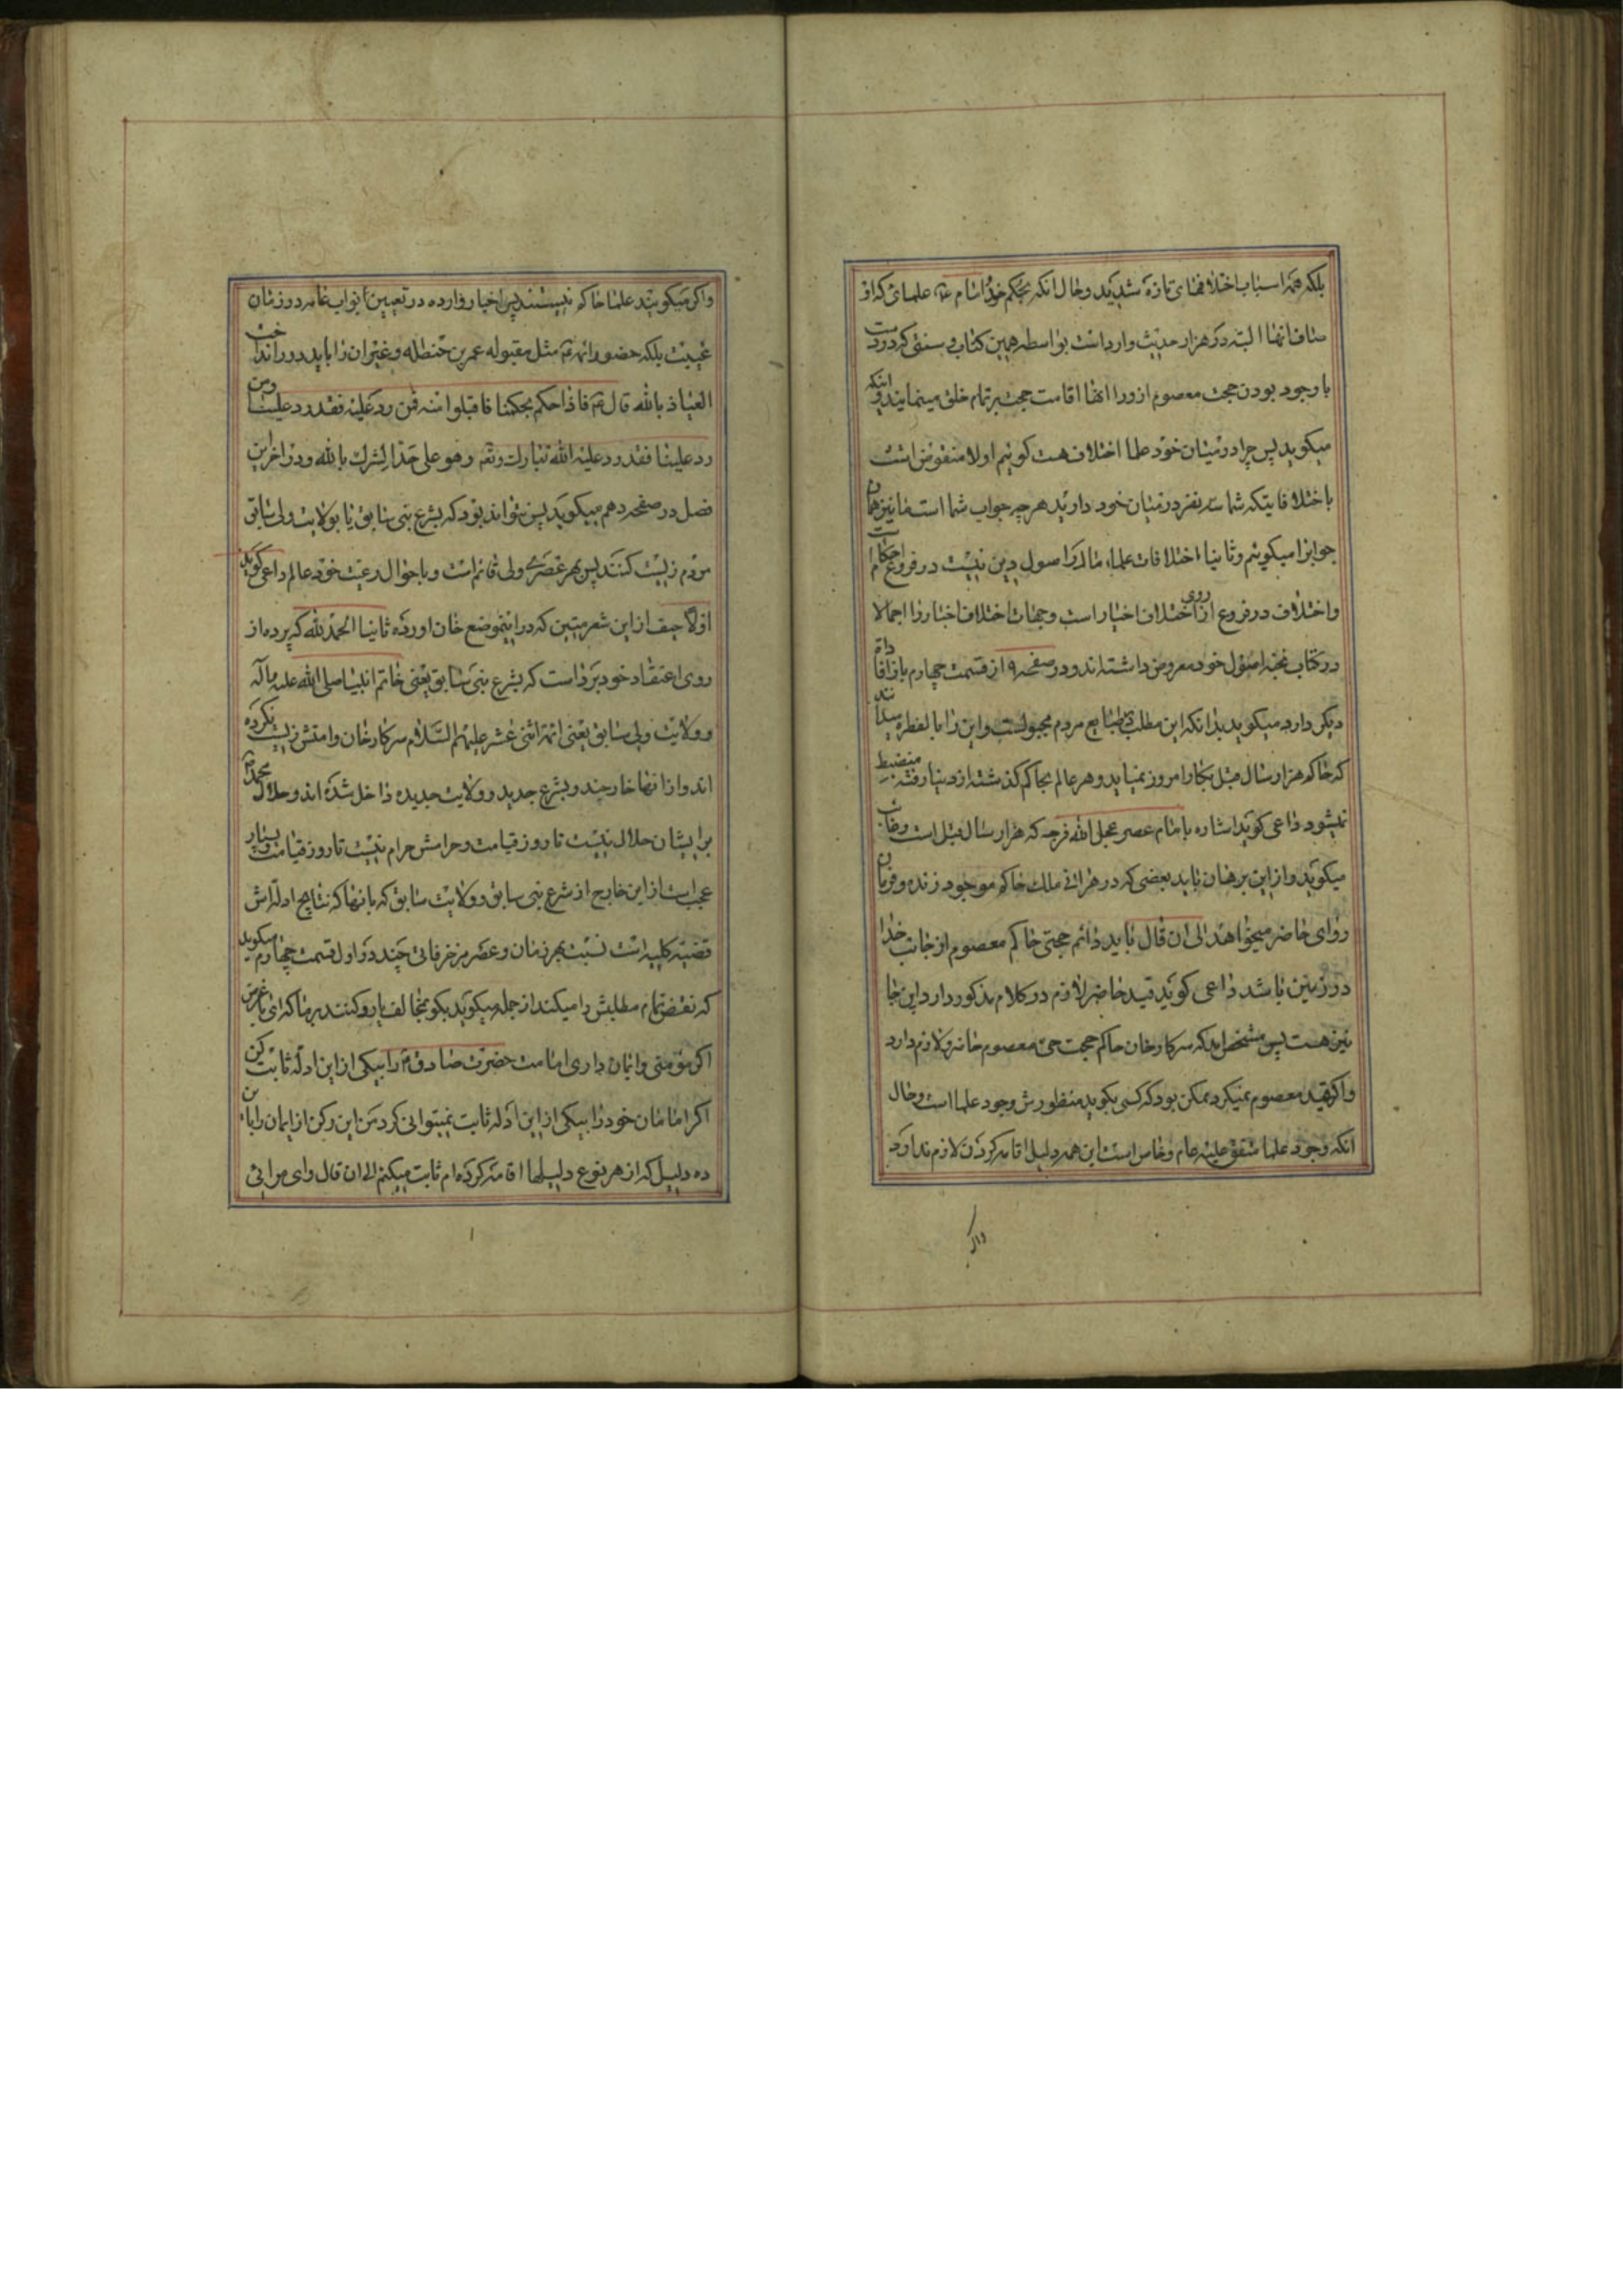 بلکه همه اسباب اختلافهای تازه شدید و حال انکه بحکم خود امام ع علمائی که از
صافانها البته در هزار حدیث وارد است بواسطه همین کتاب سنتی که در دست
با وجود بودن حجت معصوم از ورا انها اقامت حجت بر تمام خلق مینمایند و اینکه
میکوید پس چرا در میان خود علما اختلاف هست کوئیم اولا منقوض است
باختلافاتیکه شما سه نفر در میان خود دارید هر چه جواب شما است ما نیز همان
جوابرا میکوئیم و ثانیا اختلافات علماء ما در اصول دین نیست در فروع احکام است
و اختلاف در فروع از روی اختلاف اخبار است و جهات اختلاف اخبار را اجمالا
در کتاب نخبه اصول خود معروض داشته اند و در صفحه ۹ از قسمت چهارم باز اقا دام
دیکر دارد میکوید بدانکه این مطلب در طبایع مردم مجبولست و این را بالفطره میدانند
که حاکم هزار سال قبل بکار امروز نمیاید و هر عالم بحاکم کذشته از دنیا رفته منضبط
نمیشود داعی کوید اشاره بامام عصر عجل الله فرجه که هزار سال قبل است
میکوید و از این برهان باید بعضی که در هر انی ملک حاکم موجود زنده و فرمان
روای حاضر میخواهد الی ان قال باید دائم حجتی حاکم معصوم از جانب خدا
در زمین باشد داعی کوید قید حاضر لازم در کلام مذکور دارد این جا
نیز هست پس مشخص امد که سرکار خان حاکم حجت حی معصوم حاضر لازم دارد
و اکر قید معصوم نمیکرد ممکن بود که کسی بکوید منظورش وجود علما است و حال
انکه وجود علما متفق علیه عام و خاص است این همه دلیل اقامه کردن لازم ندارد
واکر
واکر میکویند علما حاکم نیستند پس اخبار وارده در تعیین نواب عامه در زمان
غیبت بلکه حضور ائمه ع مثل مقبوله عمر بن حنظله و غیر ان را باید دور انداخت
العیاذ بالله قال ع فاذا حکم بحکمنا فاقبلوا منه فمن رد علیه فقد رد علینا ومن
رد علینا فقد رد علیه الله تبارک و تع وهو علی حد الشرک بالله و در اخر این
فصل در صفحه دهم میکوید پس نتواند بود که بشرع نبی سابق یا بولایت ولی سابق
مردم زیست کنند پس بهر عصری ولی قائم است و باحوال رعیت خود عالم داعی کوید
اولا حیف از این شعر متین که در اینموضع خان اورده ثانیا الحمد لله که پرده از
روی اعتقاد خود برداست که بشرع نبی سابق یعنی خاتم انبیا صلی الله علیه و اله
و ولایت ولی سابق یعنی ائمه اثنی عشر علیهم السلام سرکار خان و امتش زیست نکرده
اند و از انها خارجند و بشرع جدید و ولایت جدیده داخل شده اند و حلال محمد ص
برایشان حلال نیست تا روز قیامت و حرامش حرام نیست تا روز قیامت و بسیار
عجب است از این خارج از شرع نبی سابق و ولایت سابق که بانها که نتایج ادله اش
قضیه کلیه است نسبت بهر زمان و عصر مزخرفاتی چند در اول قسمت چهارم میکوید
که نقض تمام مطلبش را میکند از جمله میکوید بکو بمخالف یا رو کنند بر ما که ای با غرض
اکر مؤمنی و ایمان داری امامت حضرت صادق ع را بیکی از این ادله ثابت کن
اکر امامان خود را بیکی از این ادله ثابت نمیتوانی کرد من این رکن از ایمان را با این
ده دلیل که از هر نوع دلیلها اقامه کرده ام ثابت میکنم الی ان قال وای مرائی